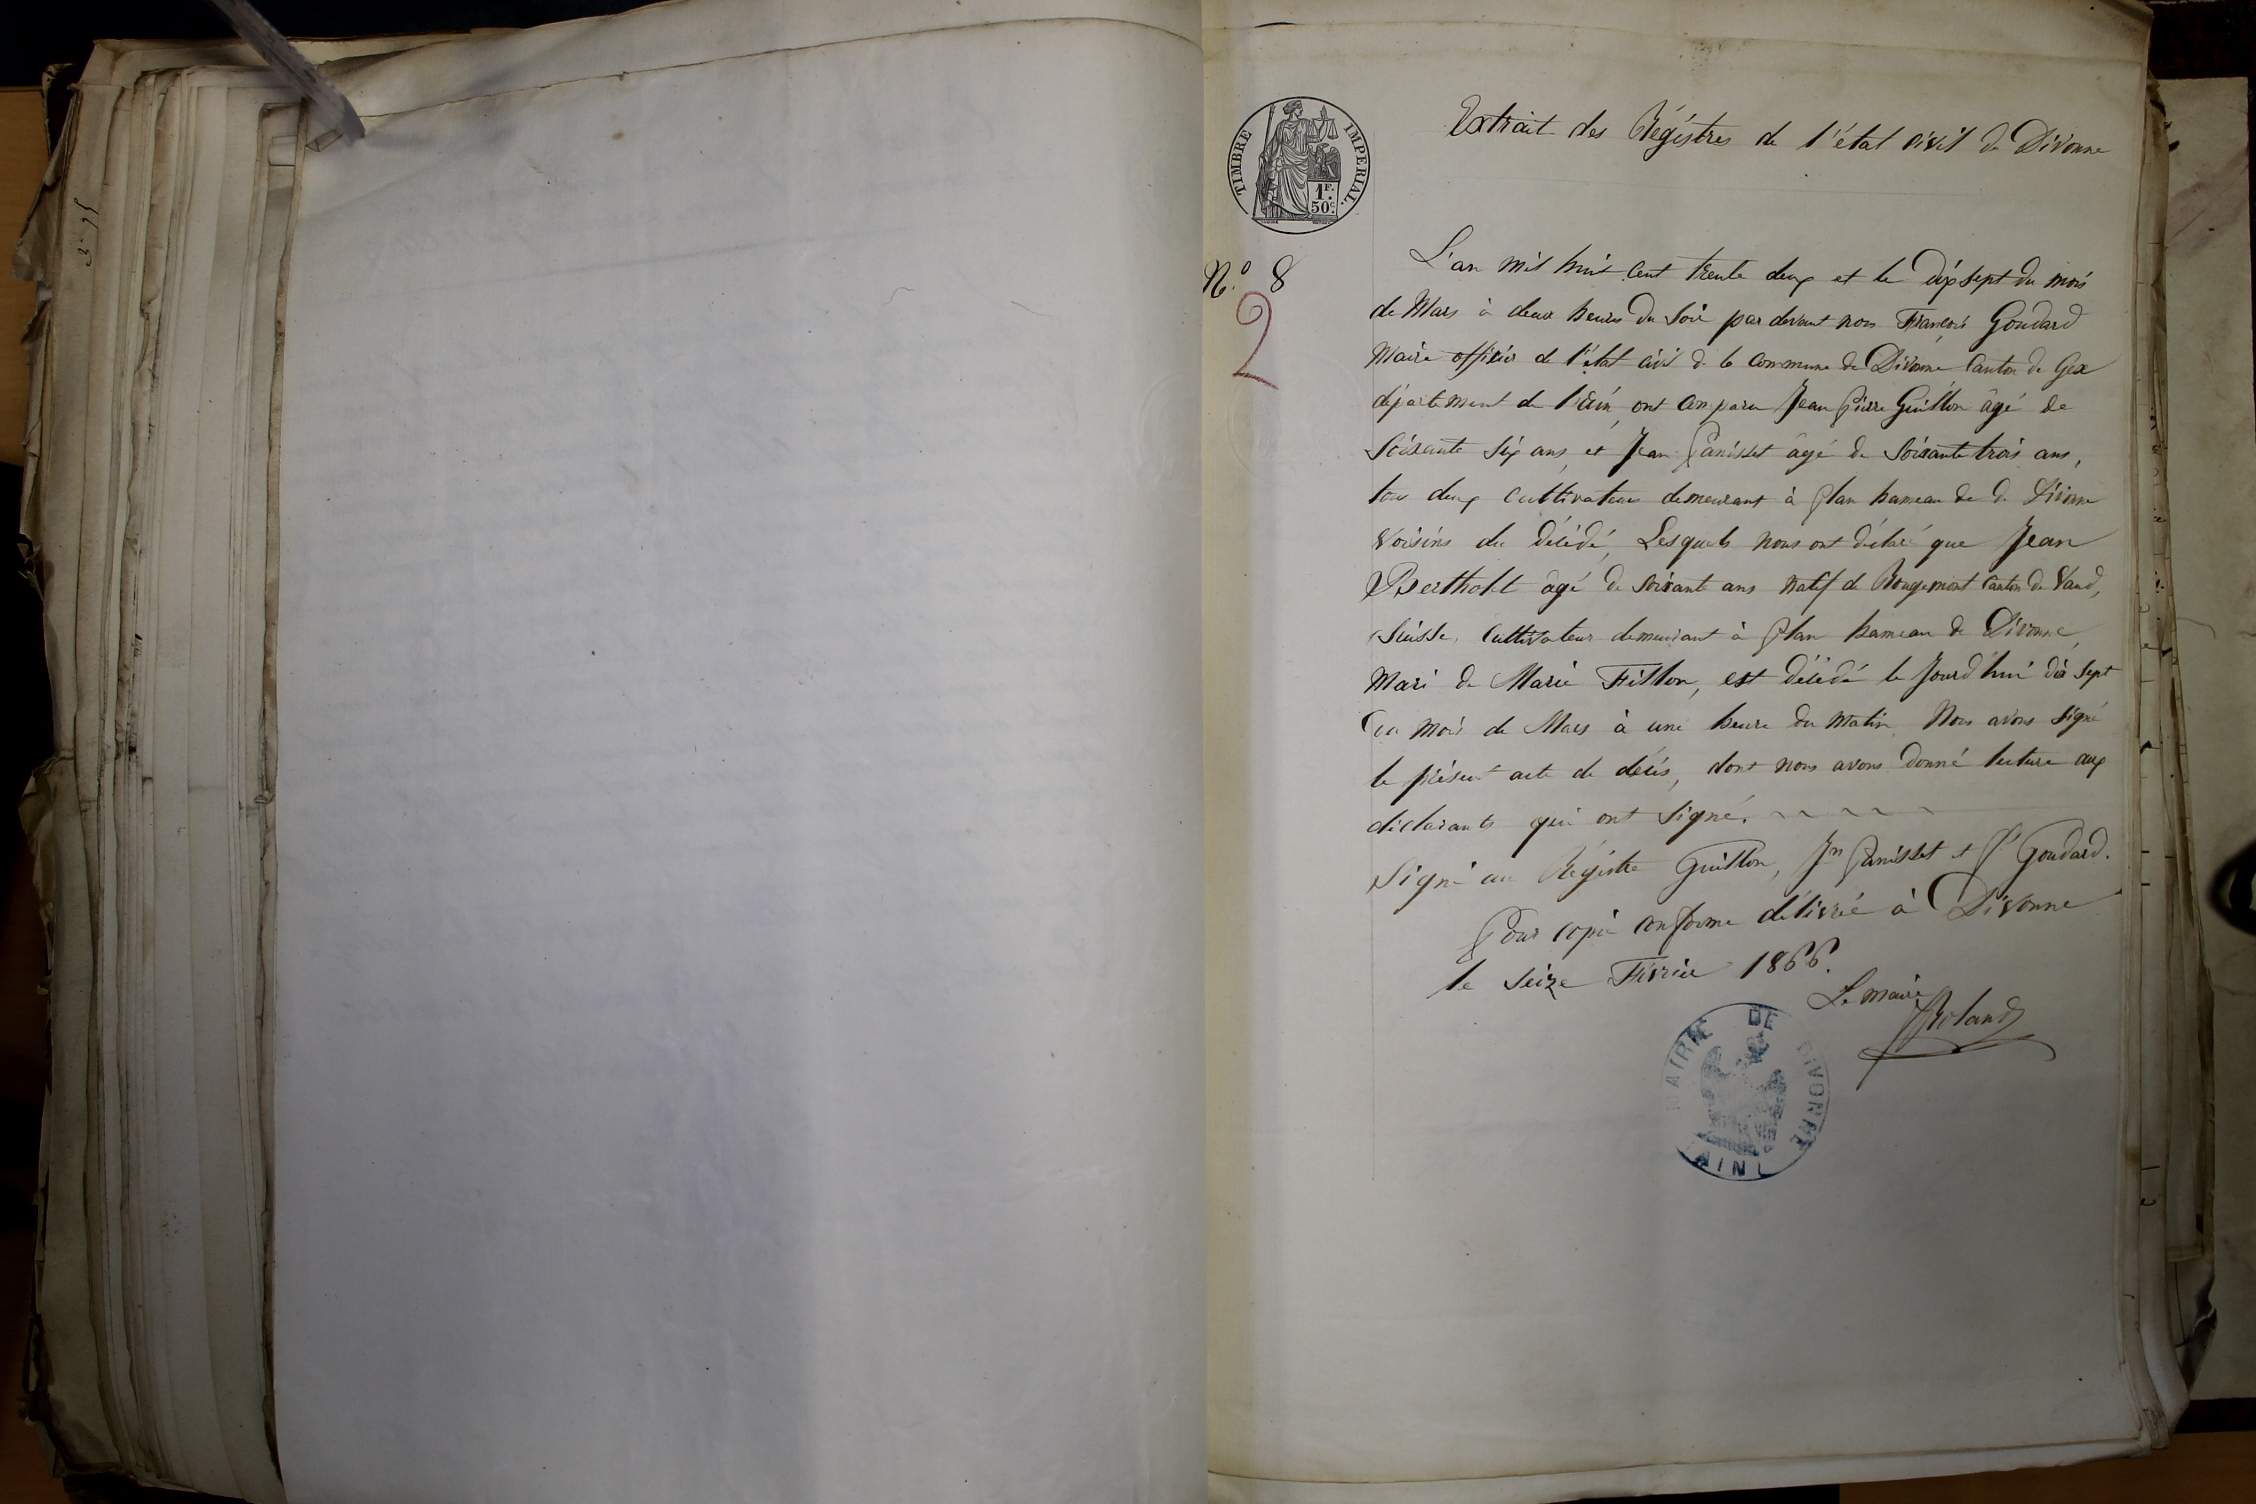 Extrait des Régistres de l'état civil de Divonne
TIMBRE IMPERIAL.
1F. 50c.
No. 8
2
L'an mil huit cent trente deux et le dix sept du mois
de Mars à deux heures du Soir par devant nous François Goudard
Maire officier de l'état civil de la commune de Divonne Canton de Gex
département de l'ain, ont comparu Jean Pierre Guillon âgé de
Soixante six ans, et Jean Panisset âgé de Soixante trois ans,
tous deux Cultivateurs demeurant à Plan hameau de de Divonne
Voisins du décédé, Lesquels nous ont déclaré que Jean
Bertholt âgé de Soixante ans natif de Rougemont Canton de Vaud,
Suisse, Cultivateur demeurant à Plan hameau de Divonne,
Mari de Marie Fillon, est décédé le jourd'hui dix sept
du mois de Mars à une heure du matin. Nous avons signé
le présent acte de décès, dont nous avons donné lecture aux
déclarants qui ont signé.
Signé au Régistre Guillon, Jn Panisset et Goudard.
Pour copie conforme délivrée à Divonne
le Seize Février 1866.
Le maire
Roland
MAIRIE DE DIVONNE
(AIN)